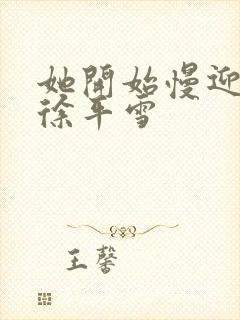 她開始慢迎
徐平雪
王馨